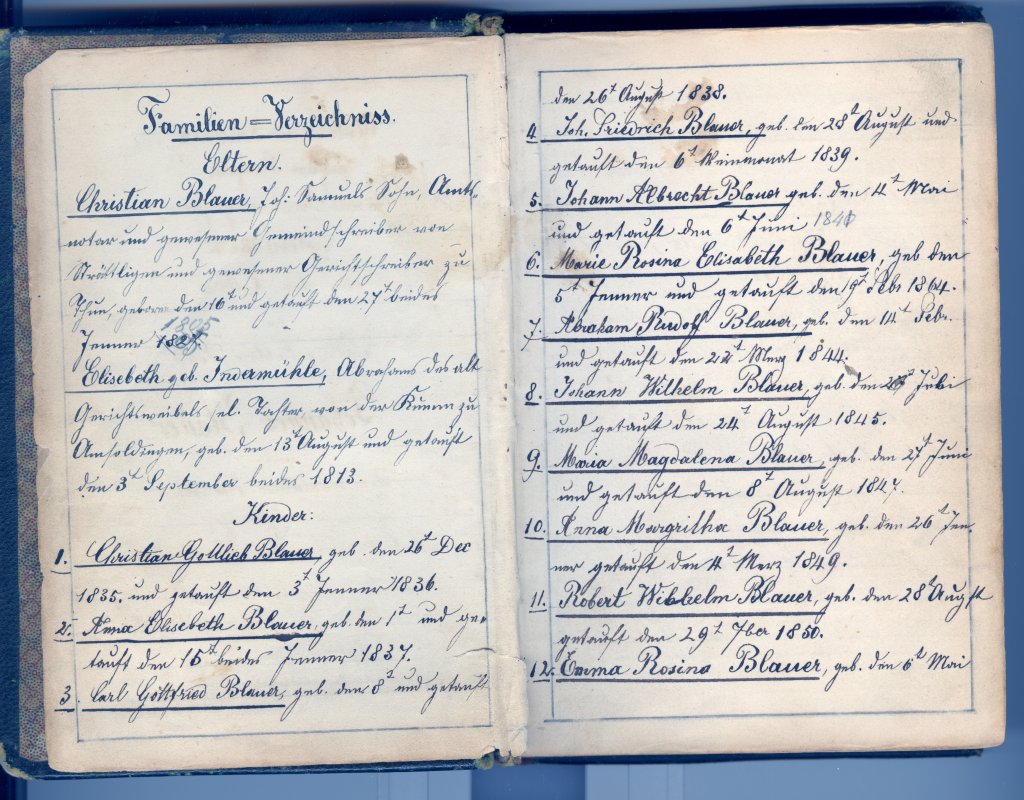 Familien=Verzeichniss.
Eltern.
Christian Blauer, Joh: Samuels Sohn, Amts-
notar und gewesener Gemeindschreiber von
Strättligen und gewesener Gerichtschreiber zu
Thun, geboren den 16t und getauft den 27t beides
1805
Jenner
Elisebeth geb. Indermühle, Abrahams des alt
Gerichtsweibels sel. Tochter, von der Kumm zu
Amsoldingen, geb. den 13t August und getauft
den 3t September beides 1813.
Kinder:
1. Christian Gottlieb Blauer geb. den 26t Dec
1835. und getauft den 3t Jenner 1836.
2. Anna Elisebeth Blauer, geb. den 1t und ge=
tauft den 15t beides Jenner 1837.
3. Carl Gottfried Blauer, geb. den 8t und getauft
den 26t August 1838.
4. Joh. Friedrich Blauer, geb. den 28t August und
getauft den 6t Weinmonat 1839.
5. Johann Albrecht Blauer geb. den 4t Mai
und getauft den 6t Juni 1841
6. Marie Rosina Elisabeth Blauer, geb den
5t Jenner und getauft den 19t Febr 1864.
7. Abraham Rudolf Blauer, geb. den 14t Febr.
und getauft den 24t Merz 1844.
8. Johann Wilhelm Blauer, geb. den Juli
und getauft den 24t August 1845.
9. Maria Magdalena Blauer, geb. den 27t Juni
und getauft den 8t August 1847.
10. Anna Margritha Blauer, geb. den 26t Jen-
ner getauft den 4t Merz 1849.
11. Robert Wilhelm Blauer, geb. den 28t Augst
getauft den 29t 7ber 1850.
12. Emma Rosina Blauer, geb. den 6t Mai